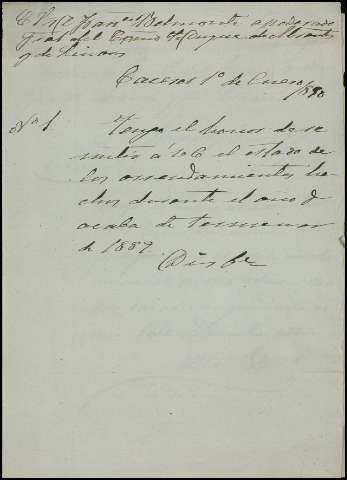 Belmonte apoderado
gral del Excmo Sr Duque de Abrantes
y de Linares
Caceres 1º de Enero/890
Nº 1
Tengo el honor de re
mitir á V.E. el estado de
los arrendamientos he
chos durante el año q
acaba de terminar
de 1889.
Dios &